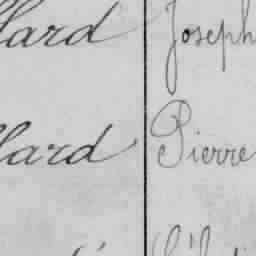 llard Joseph
llard Pierre